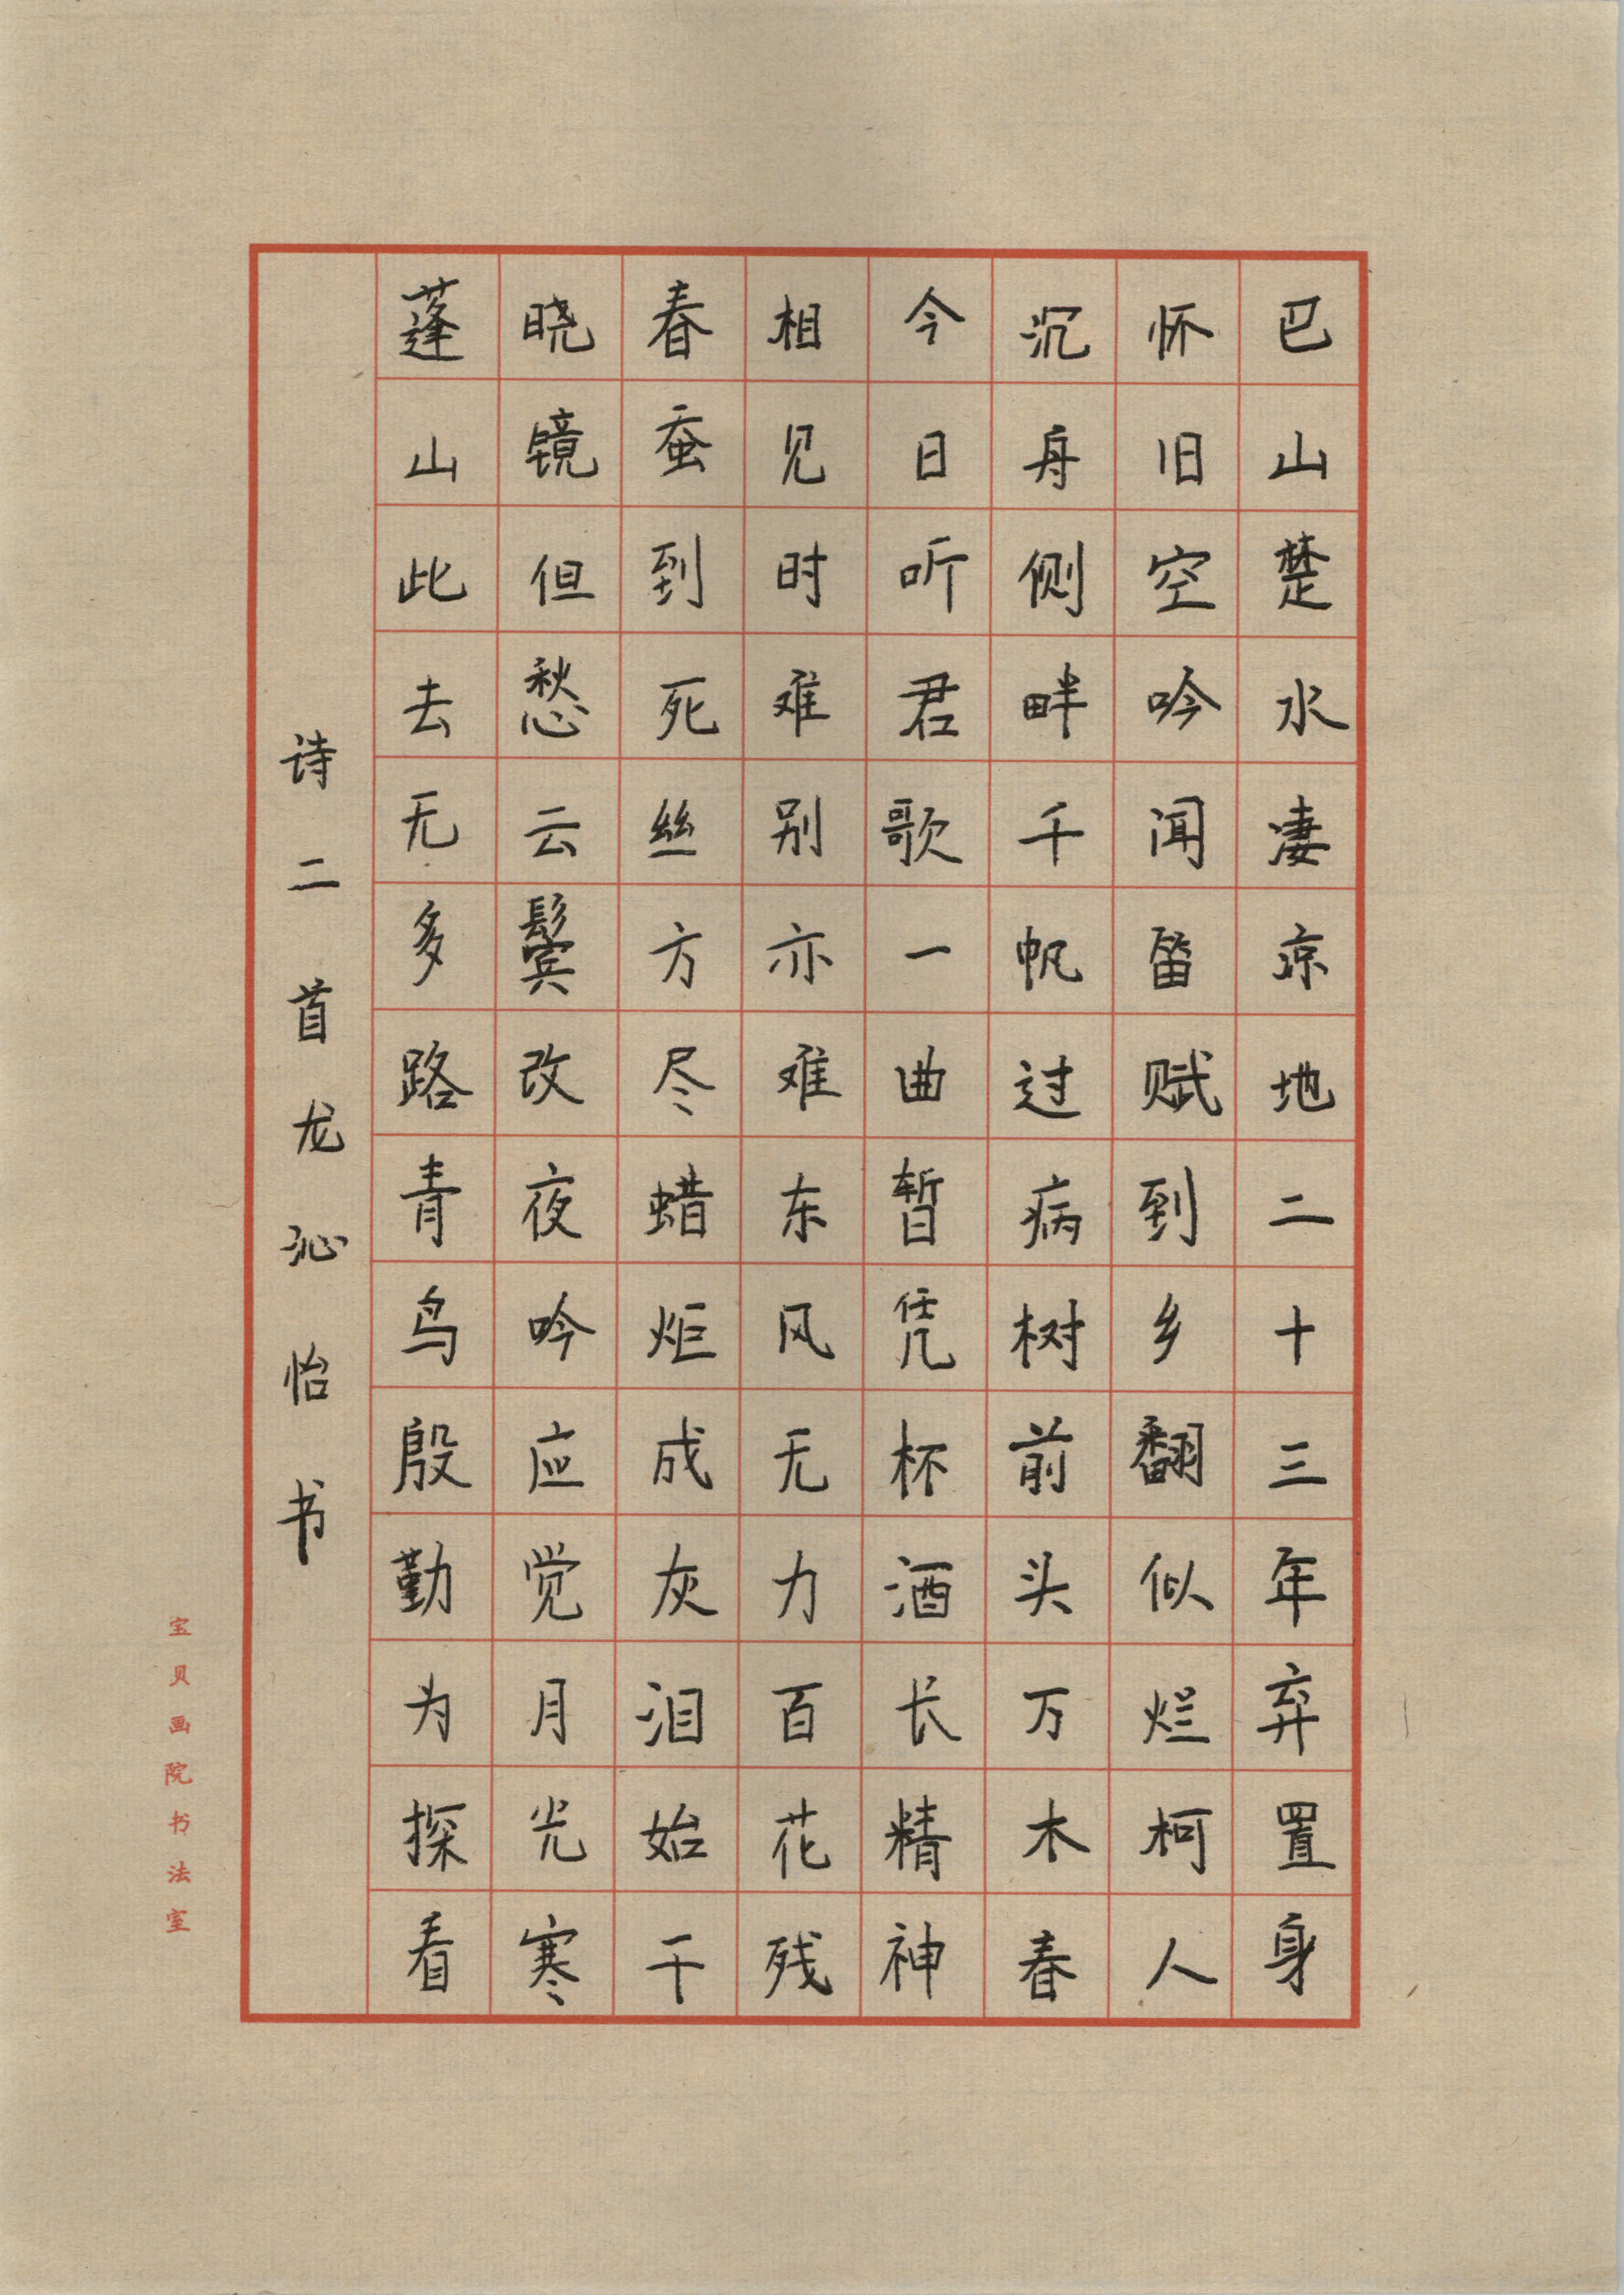 巴山楚水凄凉地二十三年弃置身
怀旧空吟闻笛赋到乡翻似烂柯人
沉舟侧畔千帆过病树前头万木春
今日听君歌一曲暂凭杯酒长精神
相见时难别亦难东风无力百花残
春蚕到死丝方尽蜡炬成灰泪始干
晓镜但愁云鬓改夜吟应觉月光寒
蓬山此去无多路青鸟殷勤为探看
诗二首龙沁怡书
宝贝画院书法室